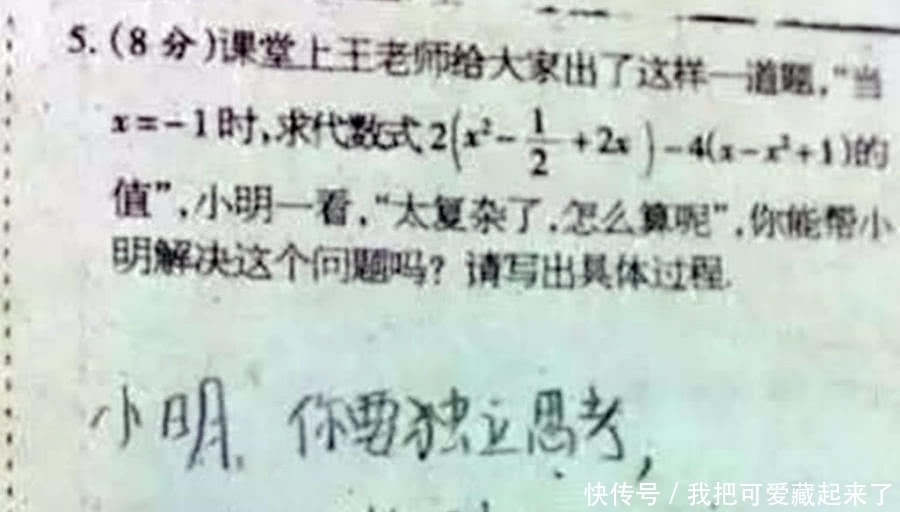 5.(8分)课堂上王老师给大家出了这样一道题,“当
x=-1时,求代数式2(x²-1/2+2x)-4(x-x²+1)的
值”,小明一看,“太复杂了,怎么算呢”,你能帮小
明解决这个问题吗?请写出具体过程.
小明,你要独立思考,
快传号/我把可爱藏起来了